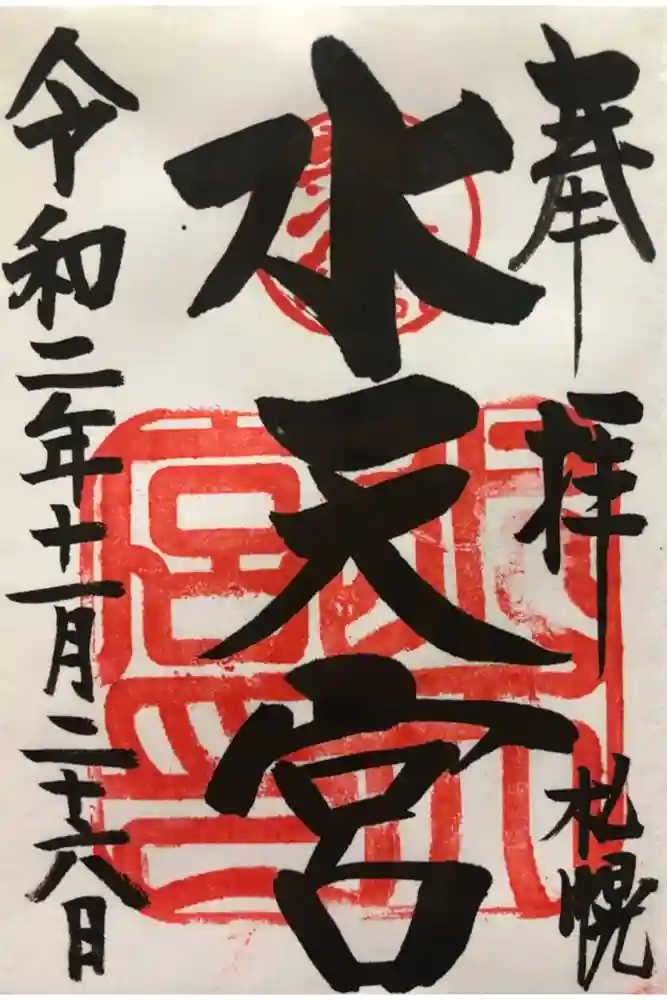 奉拝
札幌
水天宮
令和二年十一月二十六日